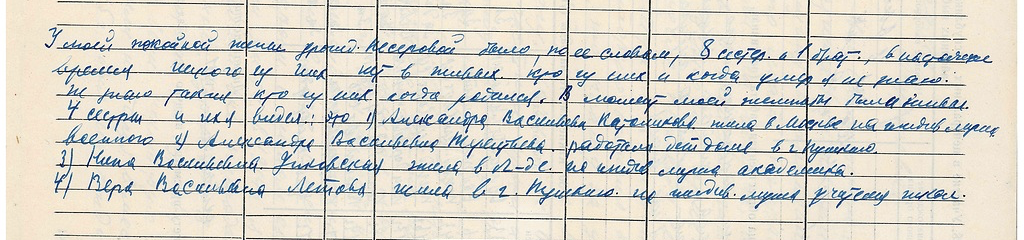 У моей покойной жены урожд. Кесаровой было, по ее словам, 8 сестер и 1 брат., в настоящее
время никого из них нет в живых кто из них и когда умер я не знаю.
Не знаю также кто из них когда родился. В момент моей женитьбы были живы
4 сестры и их я видел: это 1) Александра Васильевна жила в Москве на иждив. мужа
военного 2) Александра Васильевна Терентьева. работала детдоме в г. Пушкино.
3) Нина Васильевна жила в Л-де. на иждив. мужа академика.
4) Вера Васильевна Летова жила в г. Пушкино. на иждив. мужа учителя школ.